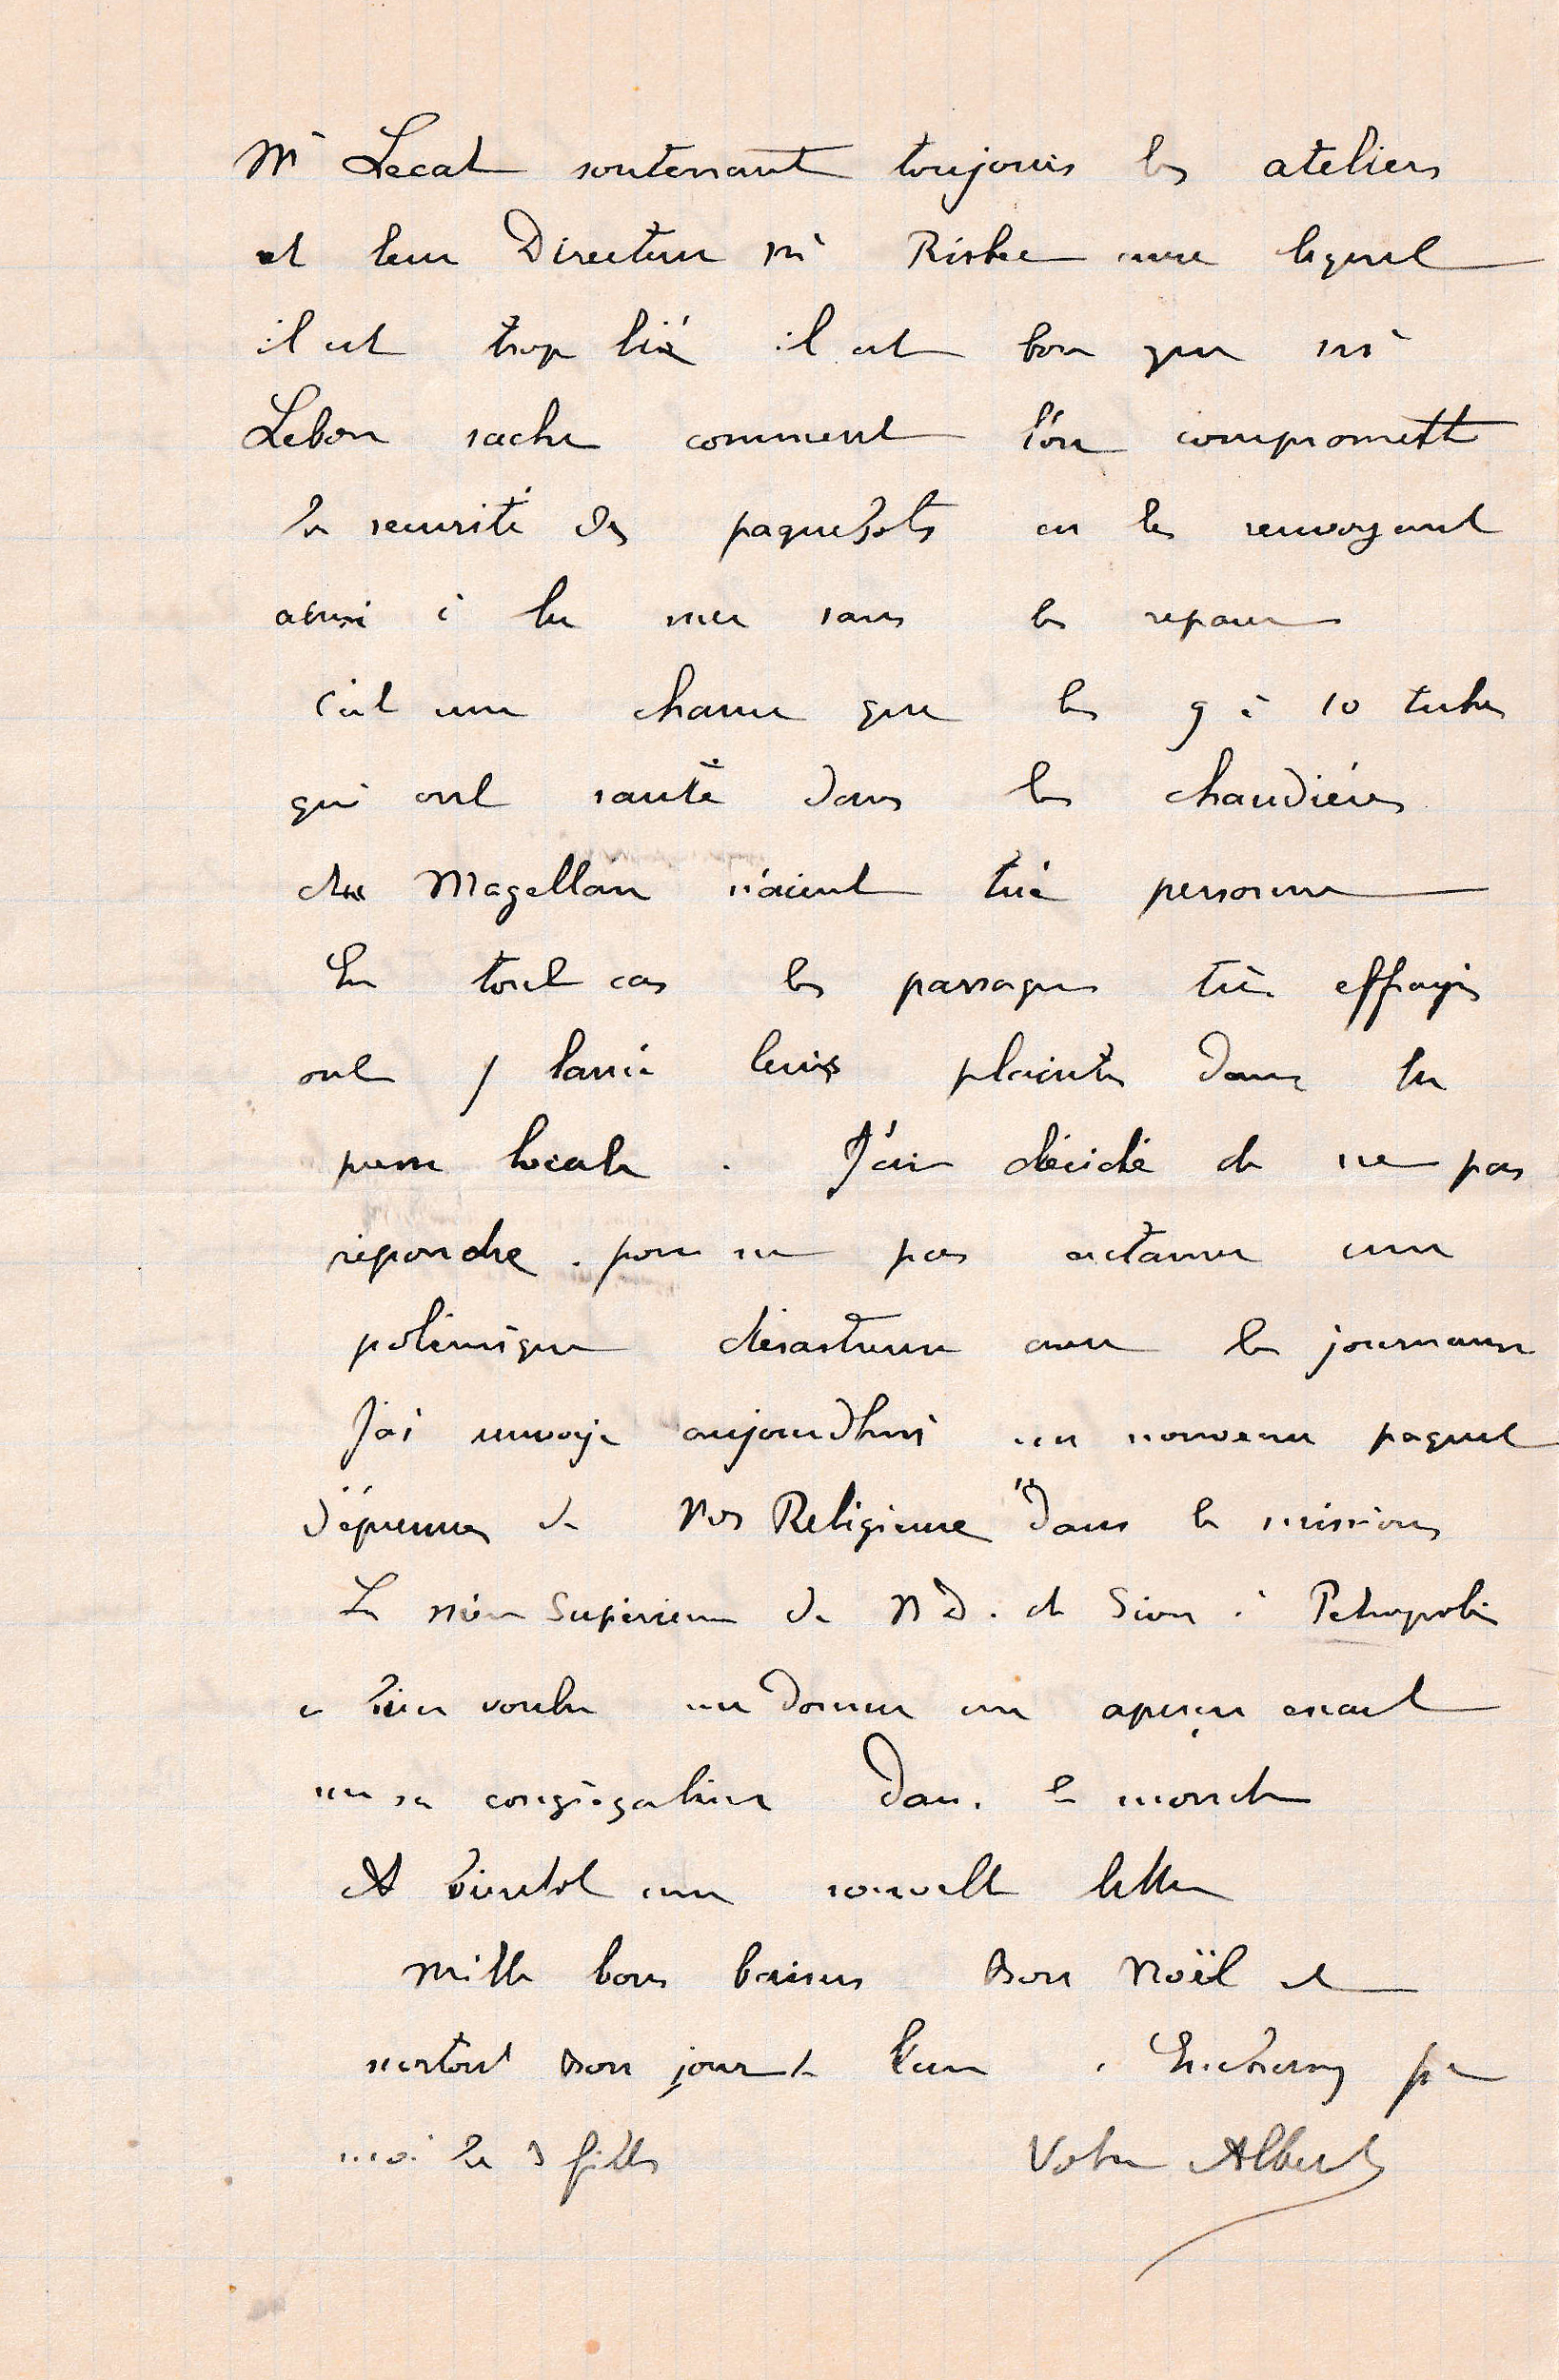 Mr Lecat soutenant toujours les ateliers
et leur Directeur Mr Risbec avec lequel
il est trop lié il est bon que Mr
Lebon sache comment l'on compromett
la securité des paquebots en les renvoyant
ainsi à la mer sans les reparer
C'est une chance que les 9 à 10 tubes
qui ont sauté dans les chaudières
du Magellan n'aient tué personne
En tout cas les passagers très effrayés
ont lancé leurs plaintes dans la
presse locale . J'ai décidé de ne pas
répondre . pour ne pas entamer une
polémique désastreuse avec les journaux
J'ai envoyé aujourdhui un nouveau paquet
d'épreuves de Nos Religieuse "dans les missions
La mère Supérieure de N D . de Sion à Petropolis
a bien voulu me donner un aperçu exact
sur sa congrégation dans le monde
A bientot une nouvelle lettre
Mille bons baisers Bon Noël et
surtout Bon jour de l'an . Embrassez pr
moi les 3 filles Votre Albert